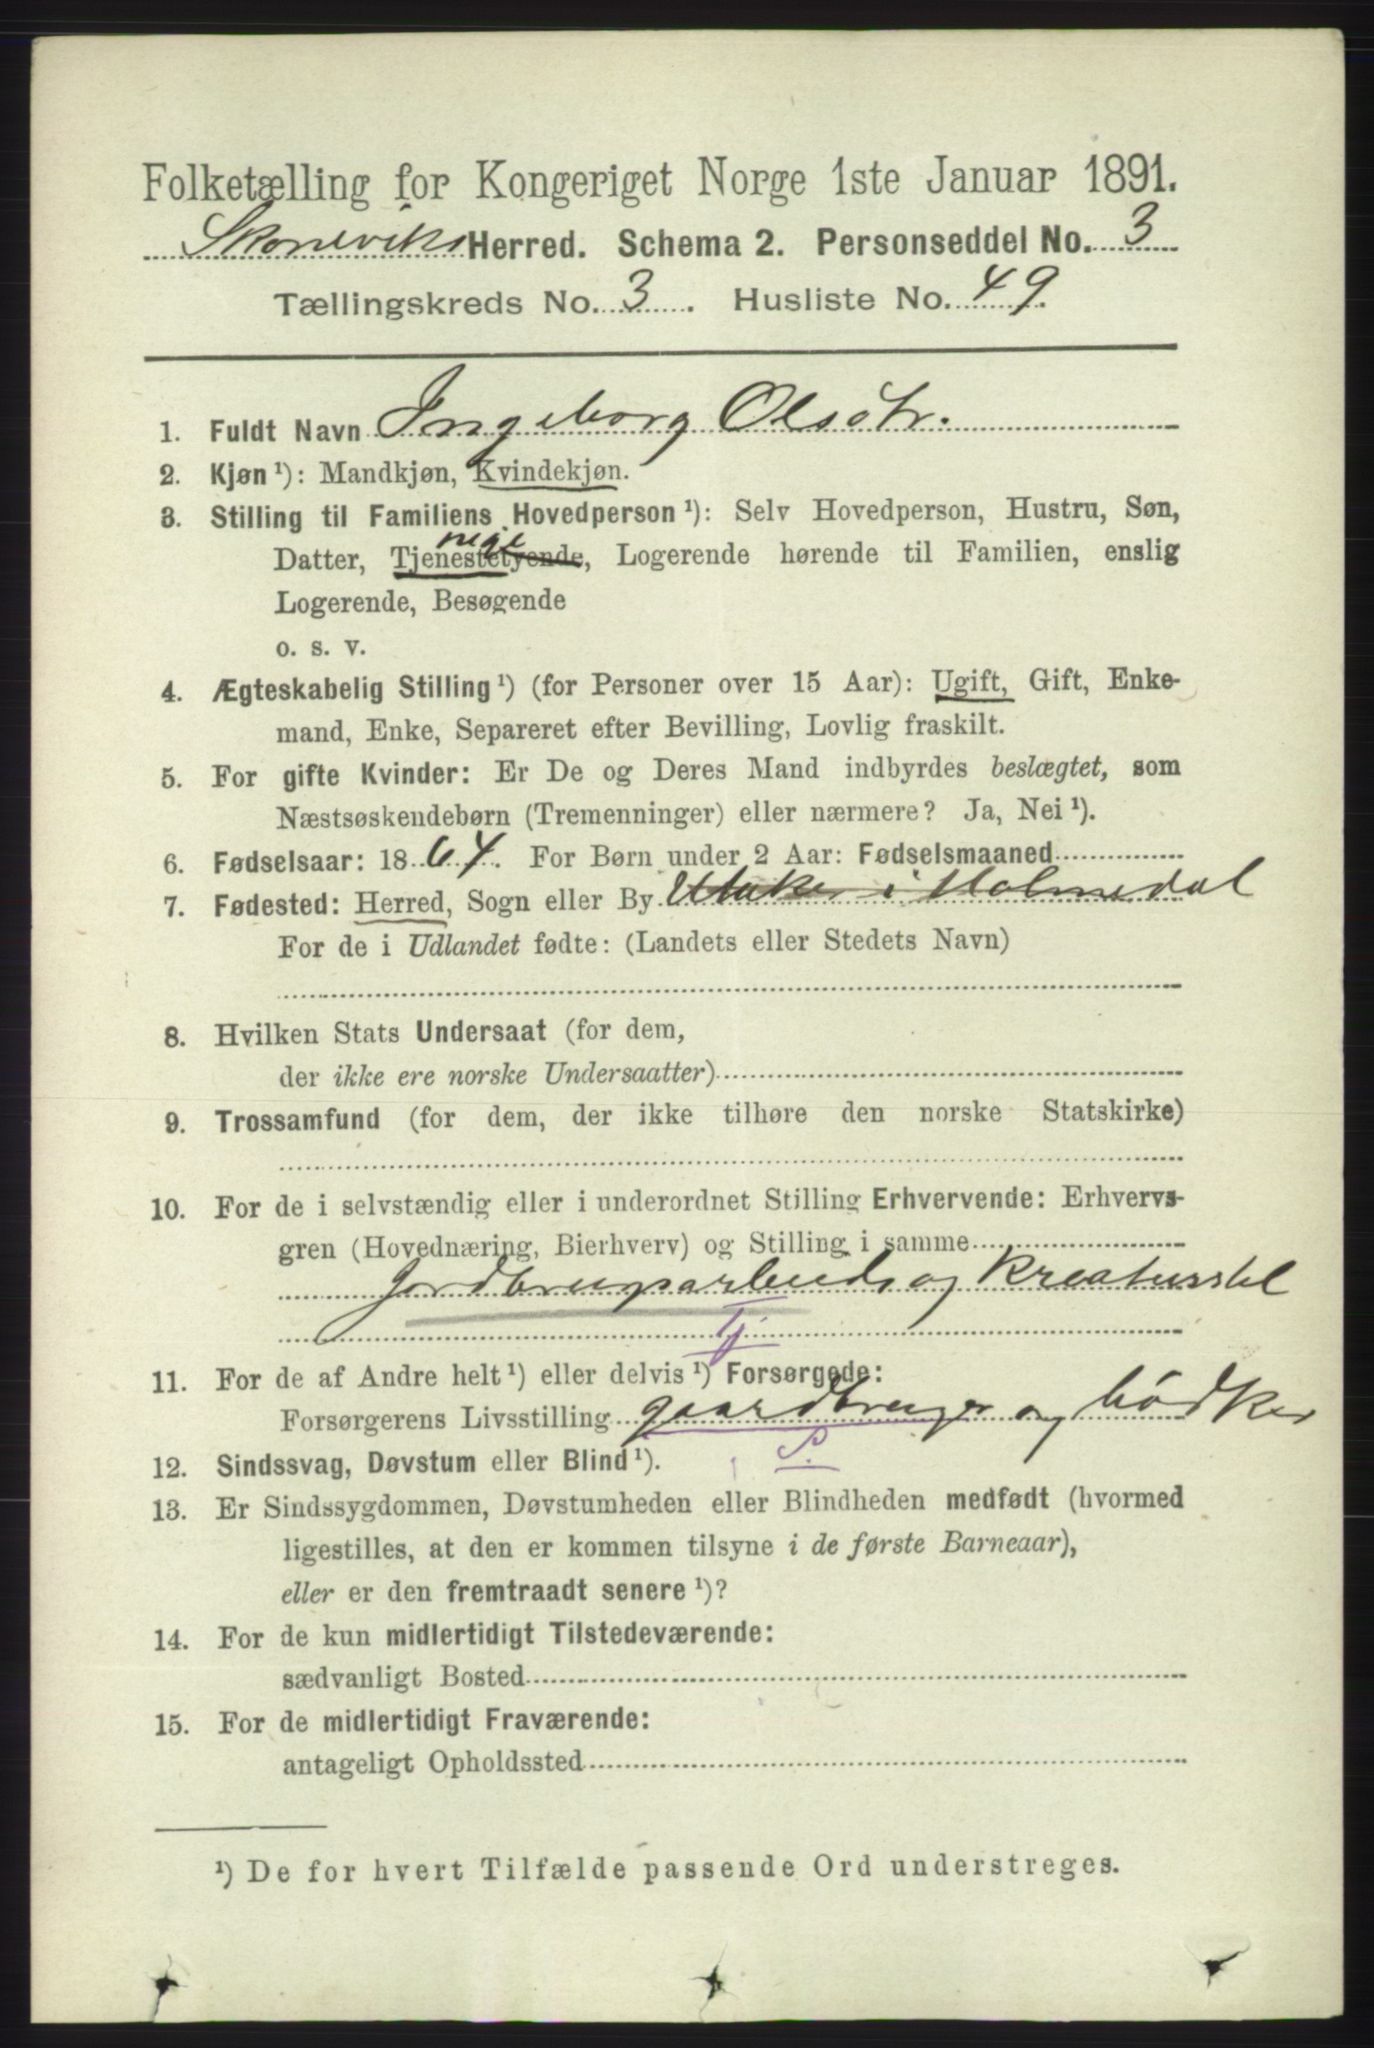 Folketælling for Kongeriget Norge 1ste Januar 1891.
Skoneviks Herred. Schema 2. Personseddel No. 3
Tællingskreds No. 3. Husliste No. 49.
1. Fuldt Navn Ingeborg Olsdtr.
2. Kjøn ¹): Mandkjøn, Kvindekjøn.
3. Stilling til Familiens Hovedperson ¹): Selv Hovedperson, Hustru, Søn,
pige
Datter, Tjenestetyende, Logerende hørende til Familien, enslig
Logerende, Besøgende
o. s. v.
4. Ægteskabelig Stilling ¹) (for Personer over 15 Aar): Ugift, Gift, Enke-
mand, Enke, Separeret efter Bevilling, Lovlig fraskilt.
5. For gifte Kvinder: Er De og Deres Mand indbyrdes beslægtet, som
Næstsøskendebørn (Tremenninger) eller nærmere? Ja, Nei ¹).
6. Fødselsaar: 1864. For Børn under 2 Aar: Fødselsmaaned
7. Fødested: Herred, Sogn eller By i Holmedal
For de i Udlandet fødte: (Landets eller Stedets Navn)
8. Hvilken Stats Undersaat (for dem,
der ikke ere norske Undersaatter)
9. Trossamfund (for dem, der ikke tilhøre den norske Statskirke)
10. For de i selvstændig eller i underordnet Stilling Erhvervende: Erhvervs-
gren (Hovednæring, Bierhverv) og Stilling i samme
Jordbrugsarbeide og Kreaturstel
Tj
11. For de af Andre helt ¹) eller delvis ¹) Forsørgede:
Forsørgerens Livsstilling gaardbruger og bødker
S.
12. Sindssvag, Døvstum eller Blind ¹).
13. Er Sindssygdommen, Døvstumheden eller Blindheden medfødt (hvormed
ligestilles, at den er kommen tilsyne i de første Barneaar),
eller er den fremtraadt senere ¹)?
14. For de kun midlertidigt Tilstedeværende:
sædvanligt Bosted
15. For de midlertidigt Fraværende:
antageligt Opholdssted
¹) De for hvert Tilfælde passende Ord understreges.